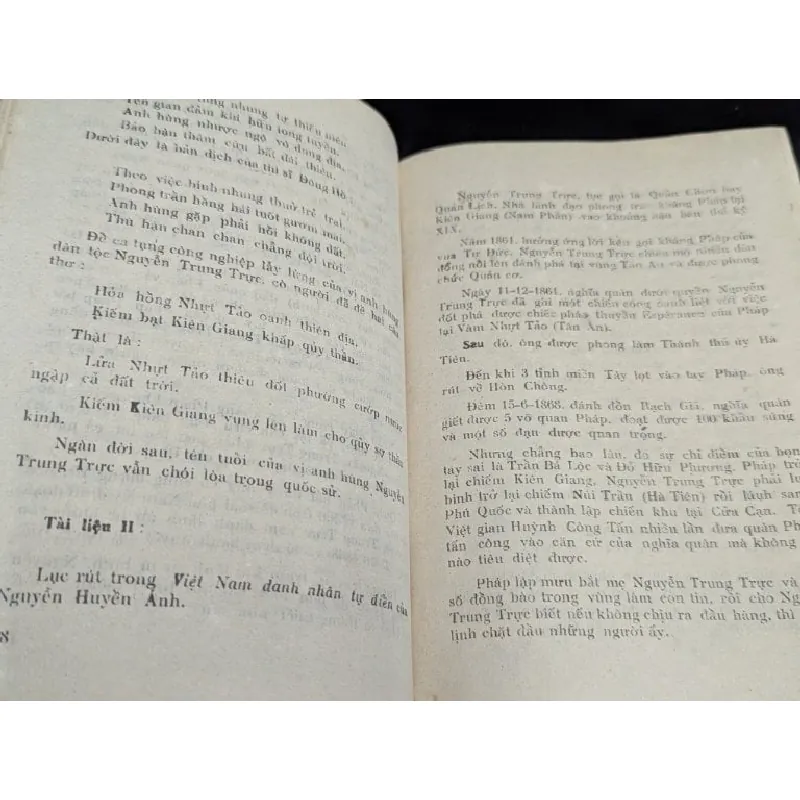 nhung tự thiếu niên,
Yên gian đảm khí hữu long tuyền.
Anh hùng nhược ngộ vô dung địa,
Bảo hận thâm cừu bất đái thiên.
Dưới đây là bản dịch của thi sĩ Đông Hồ:
Theo việc binh nhung thuở trẻ trai,
Phong trần hăng hái tuốt gươm mài.
Anh hùng gặp phải hồi không đất,
Thù hận chan chan chẳng đội trời.
Để ca tụng công nghiệp lẫy lừng của vị anh hùng
dân tộc Nguyễn Trung Trực, có người đã đề hai câu
thơ:
Hỏa hồng Nhựt Tảo oanh thiên địa,
Kiếm bạt Kiên Giang khấp qủy thần.
Thật là:
Lửa Nhựt Tảo thiêu đốt phường cướp nước
ngập cả đất trời.
Kiếm Kiên Giang vung lên làm cho qủy sợ thần
kinh.
Ngàn đời sau, tên tuổi của vị anh hùng Nguyễn
Trung Trực vẫn chói lòa trong quốc sử.
Tài liệu II:
Lục rút trong Việt Nam danh nhân tự điển của
Nguyễn Huyền Anh.
8
Nguyễn Trung Trực, tục gọi là Quản Chơn hay
Quản Lịch. Nhà lãnh đạo phong trào kháng Pháp tại
Kiên Giang (Nam Phần) vào khoảng bán thế kỷ
XIX.
Năm 1861, hưởng ứng lời kêu gọi kháng Pháp của
vua Tự Đức, Nguyễn Trung Trực chiêu mộ nhiều dân
đồng nổi lên đánh phá tại vùng Tân An và được phong
chức Quản cơ.
Ngày 11-12-1861, nghĩa quân dưới quyền Nguyễn
Trung Trực đã ghi một chiến công oanh liệt với việc
đốt phá được chiếc pháo thuyền Espérance của Pháp
tại Vàm Nhựt Tảo (Tân An).
Sau đó, ông được phong làm Thành thủ úy Hà
Tiên.
Đến khi 3 tỉnh miền Tây lọt vào tay Pháp, ông
rút về Hòn Chông.
Đêm 15-6-1868, đánh đồn Rạch Giá, nghĩa quân
giết được 5 võ quan Pháp, đoạt được 100 khẩu súng
và một số đạn dược quan trọng.
Nhưng chẳng bao lâu, do sự chỉ điểm của bọn
tay sai là Trần Bá Lộc và Đỗ Hữu Phương, Pháp trở
lại chiếm Kiên Giang, Nguyễn Trung Trực phải l
binh trở lại chiếm Núi Trần (Hà Tiên) rồi lánh sa
Phú Quốc và thành lập chiến khu tại Cửa Cạn. T
Việt gian Huỳnh Công Tấn nhiều lần đưa quân Ph
tấn công vào căn cứ của nghĩa quân mà không
nào tiêu diệt được.
Pháp lập mưu bắt mẹ Nguyễn Trung Trực và
số đồng bào trong vùng làm con tin, rồi cho Ng
Trung Trực biết nếu không chịu ra đầu hàng, thì
lịnh chặt đầu những người ấy.